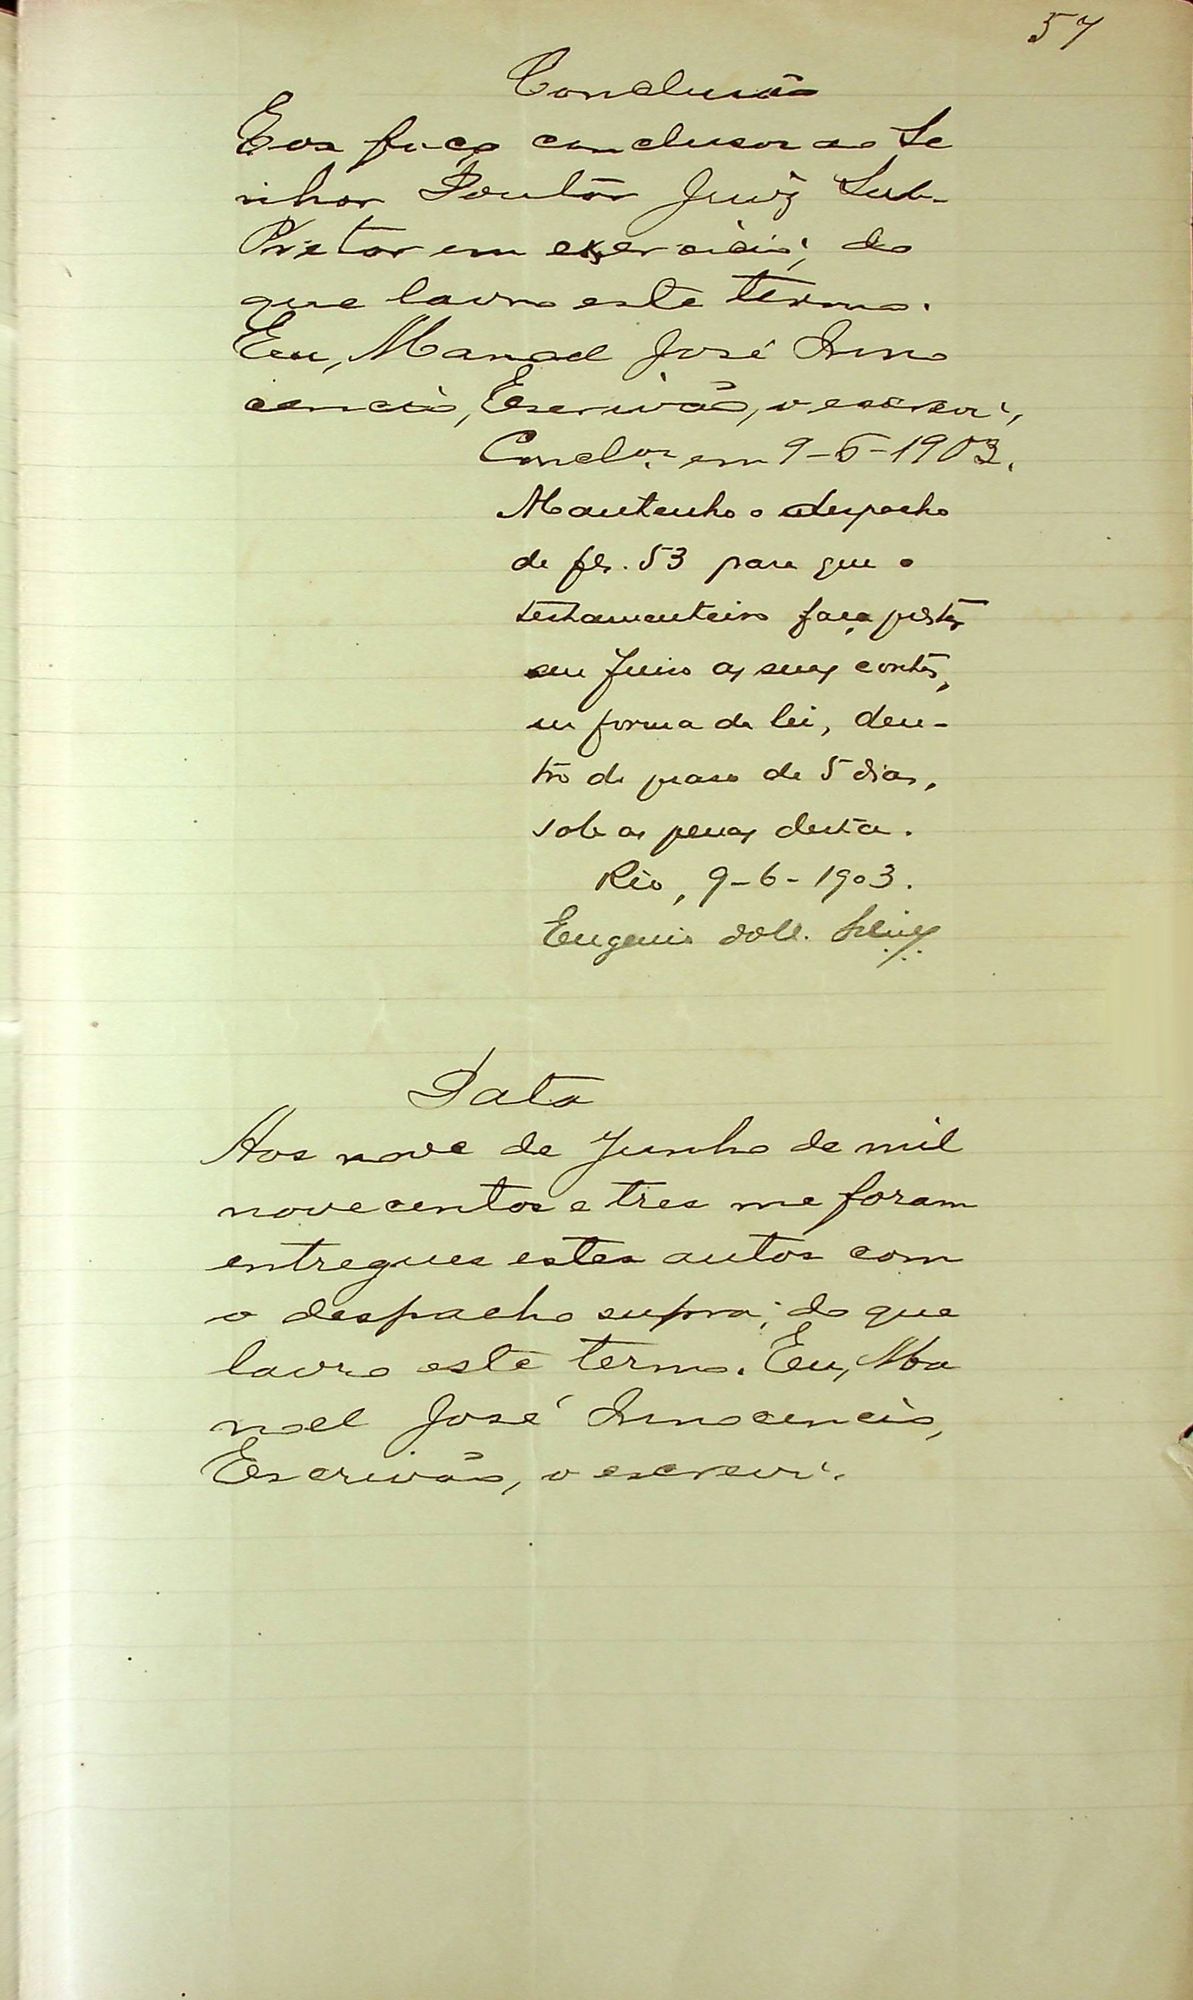 57
Conclusão
E os faço conclusos ao Se
nhor Doutor Juiz Sub-
Pretor em exercicio; do
que lavro este termo.
Eu, Manoel José Inno
cencio, Escrivão, o escrevi,
Concl.os em 9-6-1903.
Mantenho o despacho
de fls. 53 para que o
testamenteiro faça prestar
em Juizo as suas contas,
na forma da lei, den-
tro do praso de 5 dias,
sob as penas desta.
Rio, 9-6-1903.
Eugenio
Data
Aos nove de Junho de mil
novecentos e tres me foram
entregues estes autos com
o despacho supra; do que
lavro este termo. Eu, Ma
noel José Innocencio,
Escrivão, o escrevi.